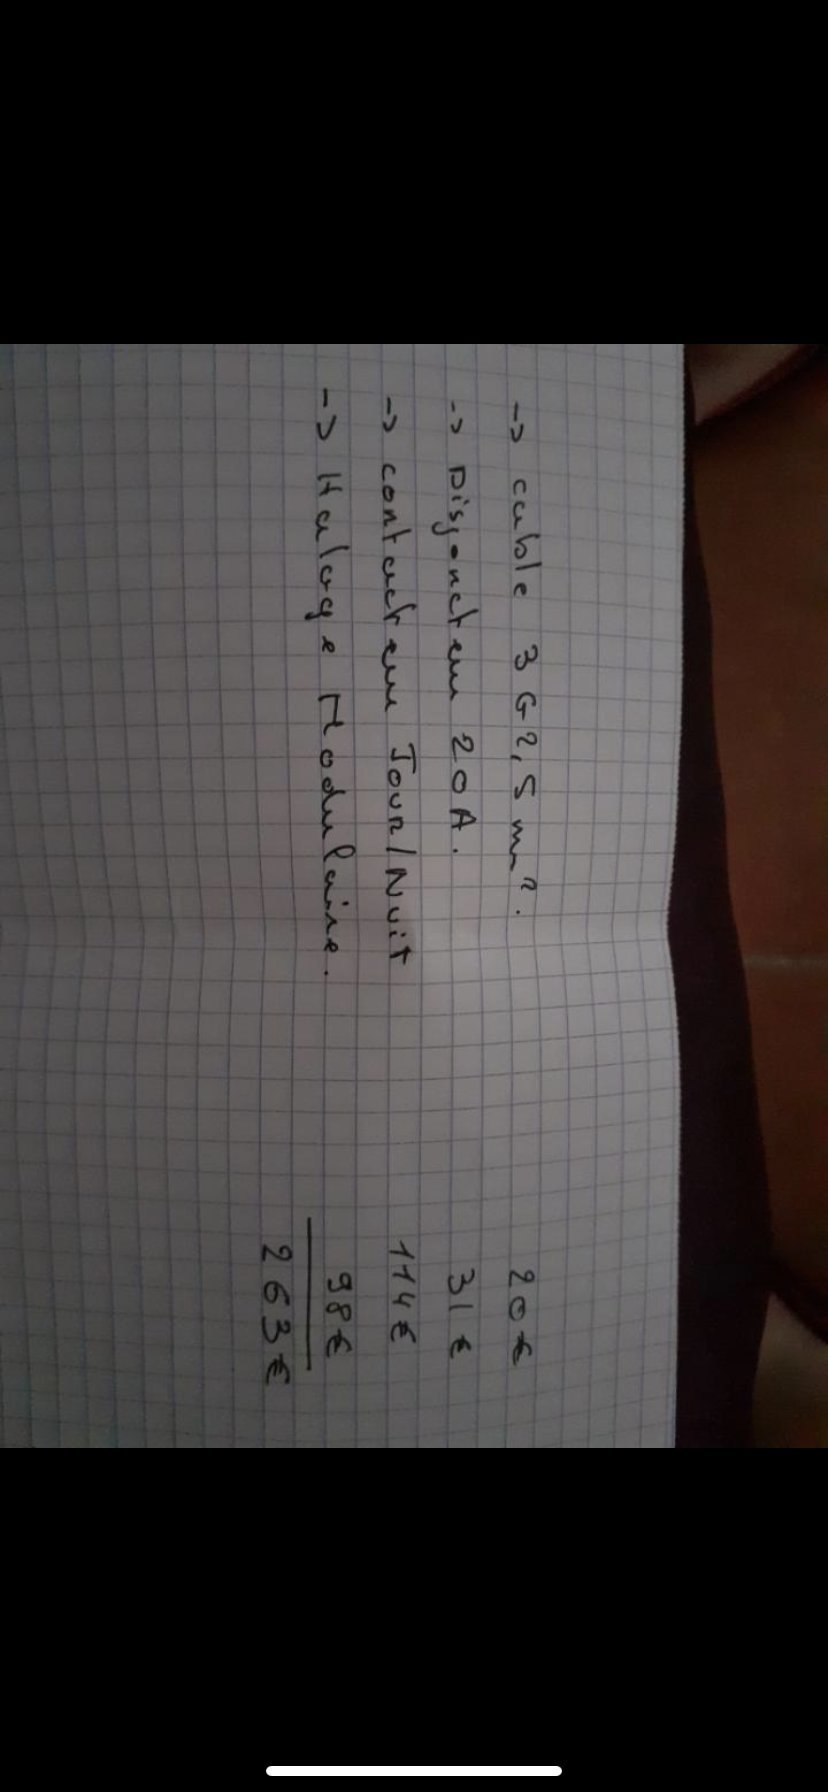 -> cable 3G2,5 mm². 20€
-> Disjoncteur 20A. 31€
-> contacteur Jour/Nuit 114€
-> Haloge Modulaire. 98€
263€